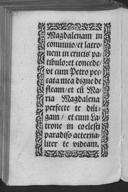 Magdalenam in
communio/ et latro-
nem in crucis pa-
tibulo: et concede/
ut cum Petro pec-
cata mea digne de-
fleam/ et cū Ma-
ria Magdalena
perfecte te dili-
gam/ et cum La-
trone in coelesti
paradiso aeterna-
liter te videam.